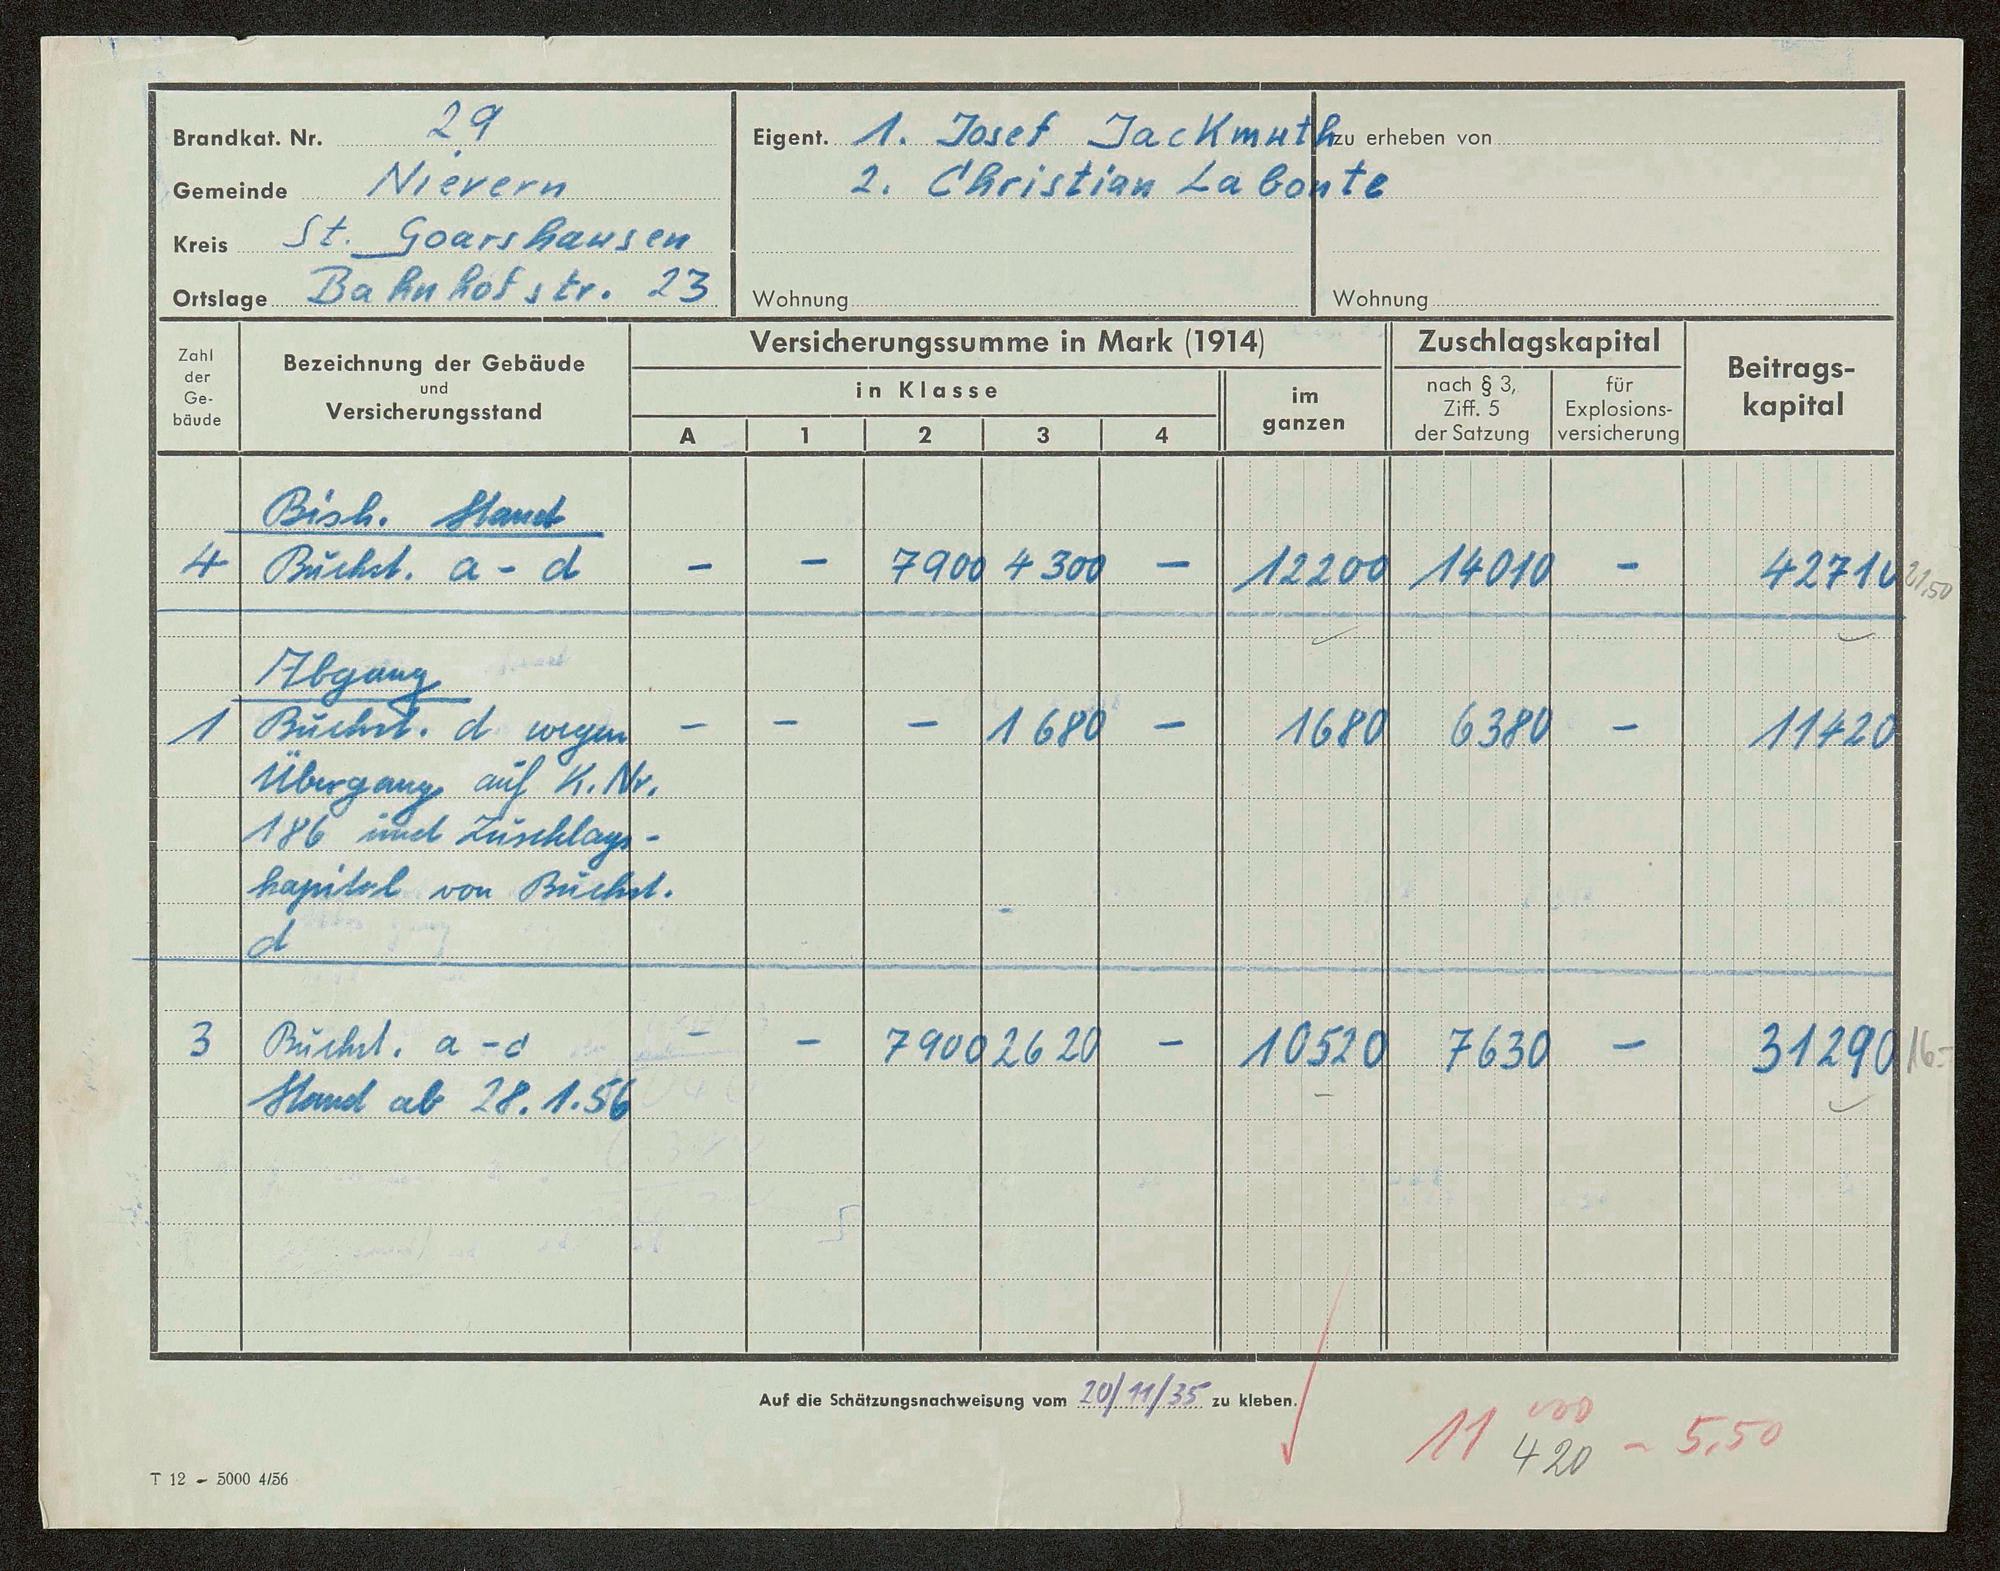 Brandkat. Nr. 29
Gemeinde Nievern
Kreis St. Goarshausen
Ortslage Bahnhofstr. 23
Eigent. 1. Josef Jackmuth
2. Christian Labonte
Wohnung
zu erheben von
Wohnung
Zahl der Ge-bäude
Bezeichnung der Gebäude
und
Versicherungsstand
Versicherungssumme in Mark (1914)
in Klasse
A 1 2 3 4
im ganzen
Zuschlagskapital
nach § 3, Ziff. 5 der Satzung
für Explosions-versicherung
Beitrags-kapital
Bish. Stand
4 Buchst. a - d - - 7900 4300 - 12200 14010 - 42710 21,50
Abgang
1 Buchst. d wegen - - - 1680 - 1680 6380 - 11420
Übergang auf K. Nr.
186 und Zuschlags-
kapital von Buchst.
d
3 Buchst. a - d - - 7900 2620 - 10520 7630 - 31290 16.-
Stand ab 28.1.56
Auf die Schätzungsnachweisung vom 20/11/35 zu kleben.
11 420 - 5,50
T 12 - 5000 4/56